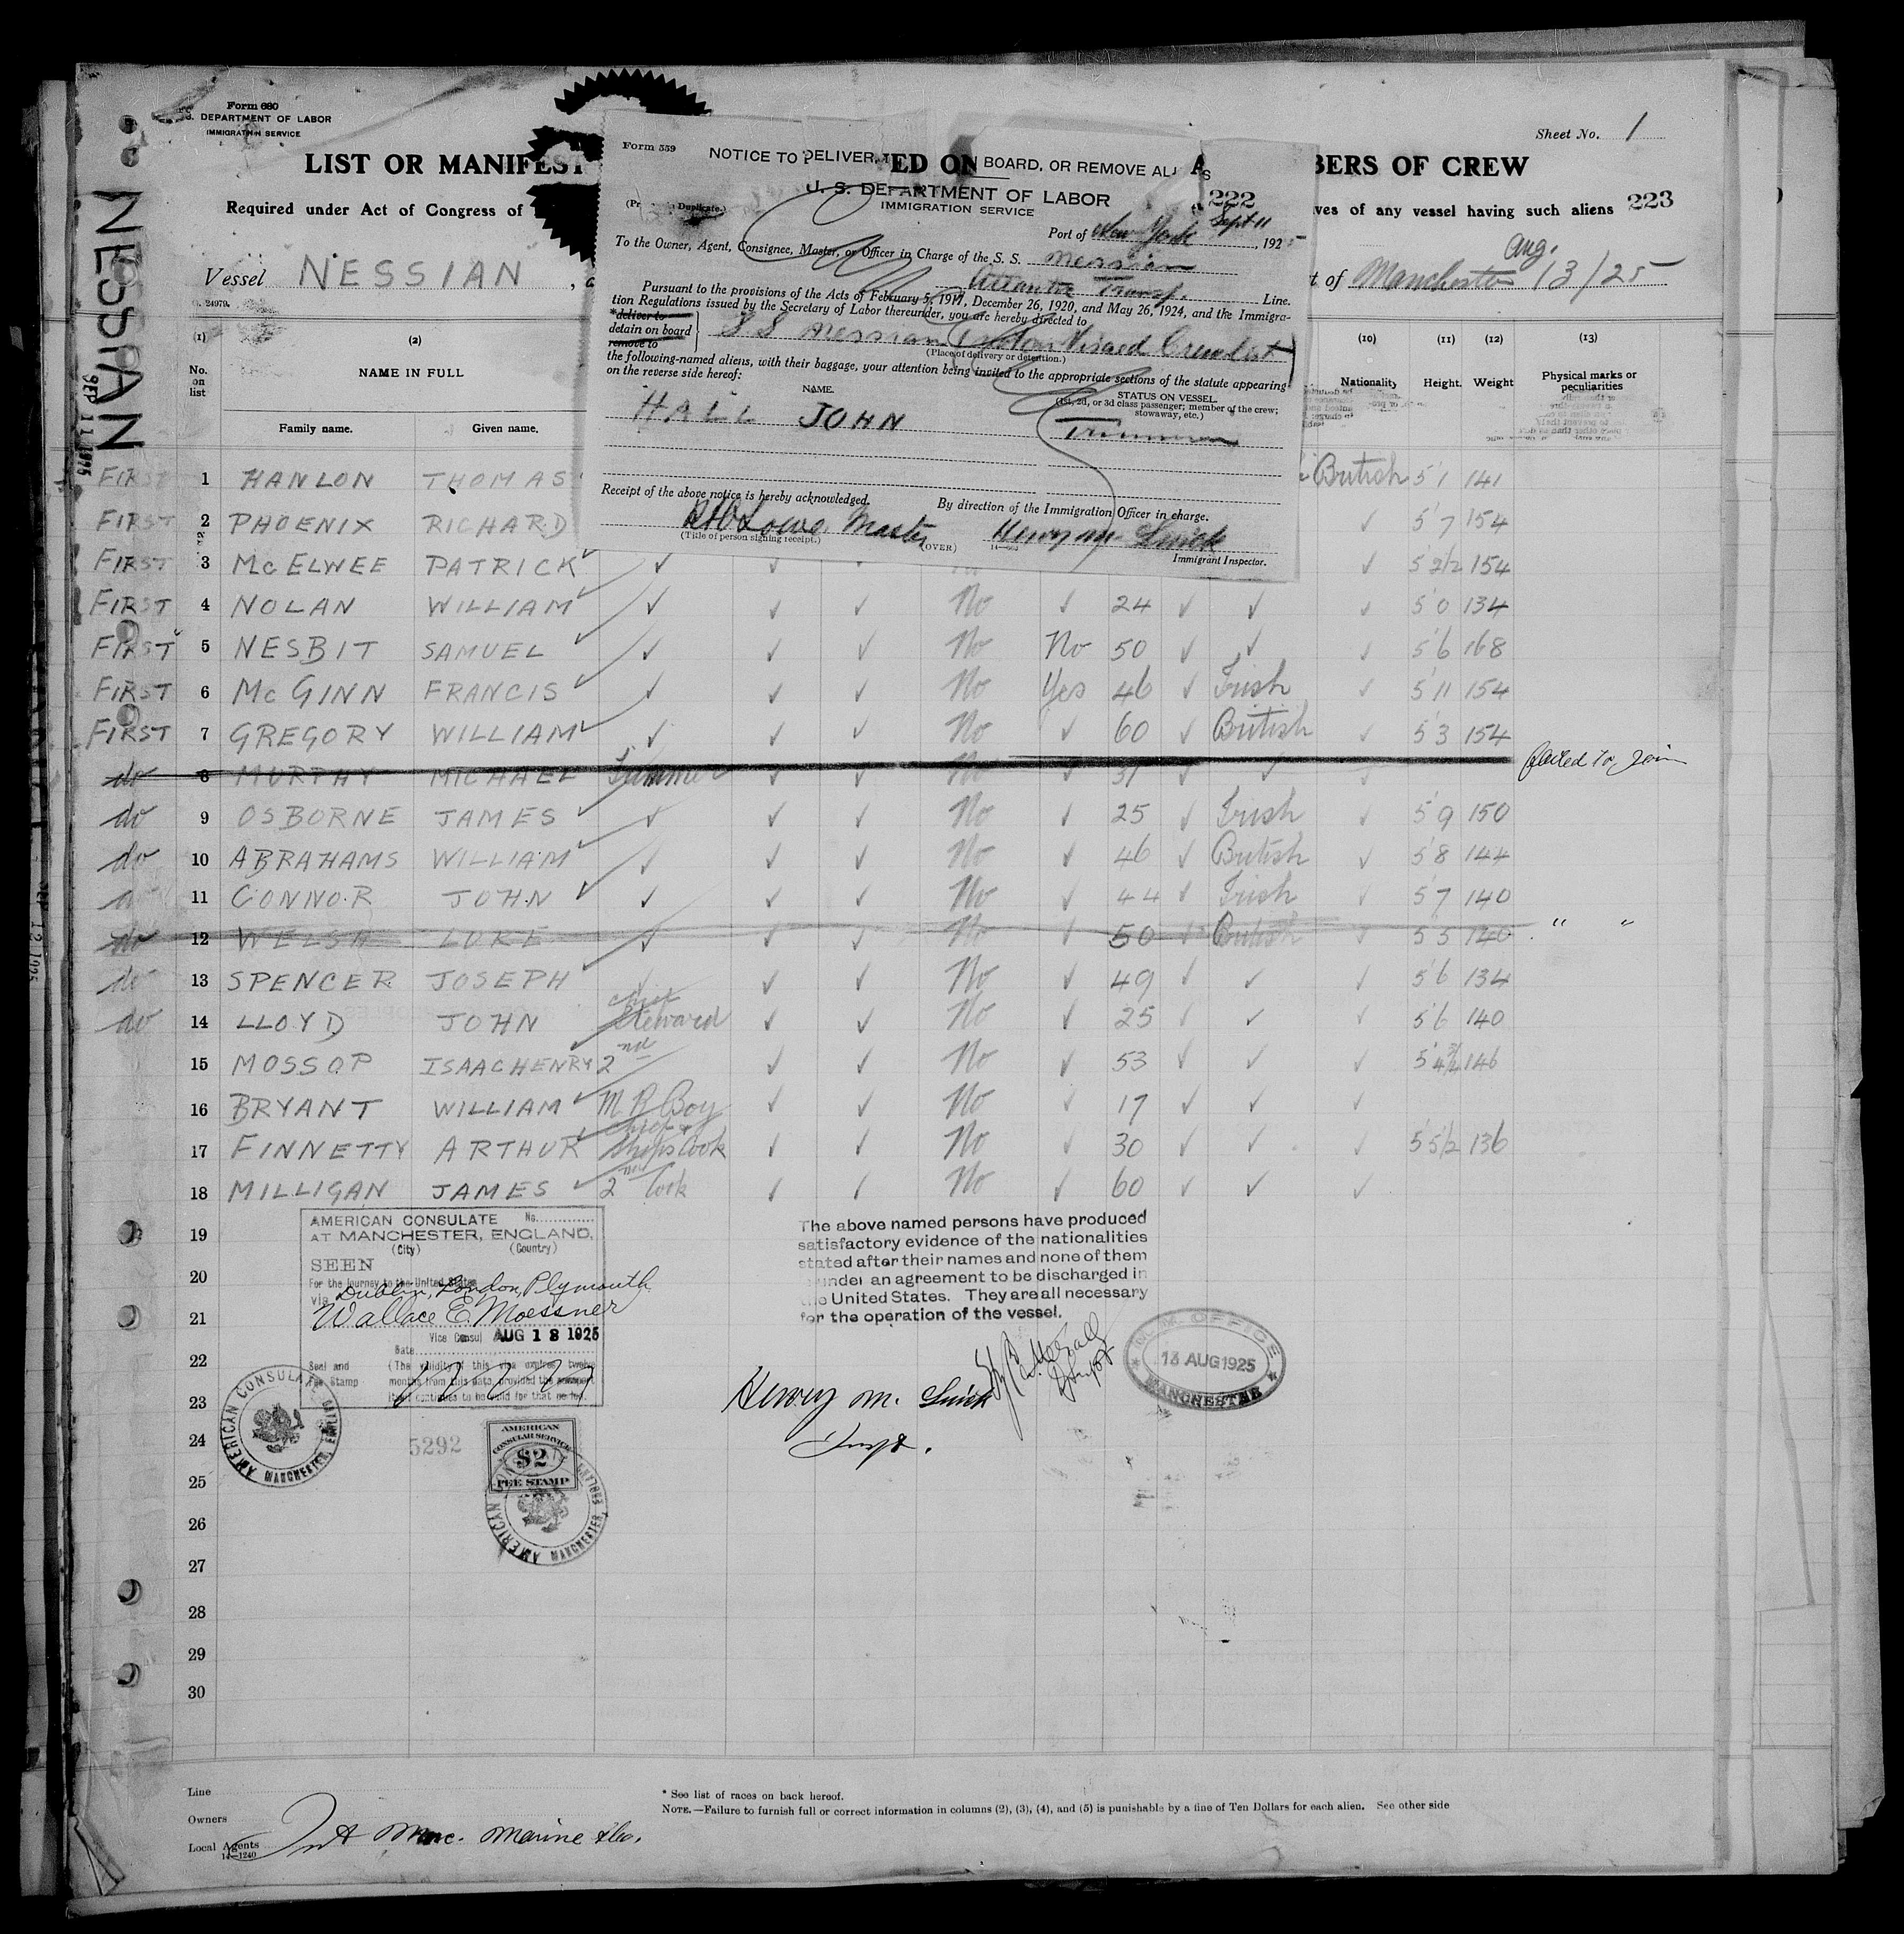 Form 680
S. DEPARTMENT OF LABOR
IMMIGRATION SERVICE
Sheet No. 1
LIST OR MANIFEST
BERS OF CREW
Required under Act of Congress of
ves of any vessel having such aliens 223
Vessel NESSIAN
t of Manchester Aug. 13/25
NESSIAN
SEP 11 1925
Form 559
NOTICE TO DELIVER,
ED ON BOARD, OR REMOVE
U. S. DEPARTMENT OF LABOR
IMMIGRATION SERVICE
222
Duplicate.)
Port of New York Sept 11, 1925
To the Owner, Agent, Consignee, Master, or Officer in Charge of the S. S. Nessian
Atlantic Transp. Line.
Pursuant to the provisions of the Acts of February 5, 1917, December 26, 1920, and May 26, 1924, and the Immigra-
tion Regulations issued by the Secretary of Labor thereunder, you are hereby directed to
*deliver to
detain on board
remove to
S S Nessian Visaed Crewlist
(Place of delivery or detention.)
the following-named aliens, with their baggage, your attention being invited to the appropriate sections of the statute appearing
on the reverse side hereof:
NAME.
STATUS ON VESSEL.
(1st, 2d, or 3d class passenger; member of the crew;
stowaway, etc.)
HALL JOHN Trimmer
Receipt of the above notice is hereby acknowledged.
By direction of the Immigration Officer in charge.
Lowe Master
(Title of person signing receipt.)
(OVER)
Henry M.
Immigrant Inspector.
(1) (2) (10) (11) (12) (13)
No. on list
NAME IN FULL
Family name. Given name.
Nationality Height. Weight Physical marks or peculiarities
FIRST 1 HANLON THOMAS British 5'1 141
FIRST 2 PHOENIX RICHARD ✓ 5'7 154
FIRST 3 McELWEE PATRICK ✓ ✓ ✓ 5'2½ 154
FIRST 4 NOLAN WILLIAM ✓ ✓ ✓ No ✓ 24 ✓ ✓ ✓ 5'0 134
FIRST 5 NESBIT SAMUEL ✓ ✓ ✓ No No 50 ✓ ✓ ✓ 5'6 168
FIRST 6 McGINN FRANCIS ✓ ✓ ✓ No Yes 46 ✓ Irish ✓ 5'11 154
FIRST 7 GREGORY WILLIAM ✓ ✓ ✓ No ✓ 60 ✓ British ✓ 5'3 154
do 8 MURPHY MICHAEL Trimmer ✓ ✓ No ✓ 31 ✓ ✓ ✓ failed to join
do 9 OSBORNE JAMES ✓ ✓ ✓ No ✓ 25 ✓ Irish ✓ 5'9 150
do 10 ABRAHAMS WILLIAM ✓ ✓ ✓ No ✓ 46 ✓ British ✓ 5'8 144
do 11 CONNOR JOHN ✓ ✓ ✓ No ✓ 44 ✓ Irish ✓ 5'7 140
do 12 WELSH LUKE ✓ ✓ ✓ No ✓ 50 ✓ British ✓ 5'5 140 " "
do 13 SPENCER JOSEPH ✓ ✓ ✓ No ✓ 49 ✓ ✓ ✓ 5'6 134
do 14 LLOYD JOHN Chief Steward ✓ ✓ No ✓ 25 ✓ ✓ ✓ 5'6 140
15 MOSSOP ISAAC HENRY 2nd ✓ ✓ No ✓ 53 ✓ ✓ ✓ 5'4¾ 146
16 BRYANT WILLIAM M R Boy ✓ ✓ No ✓ 17 ✓ ✓ ✓
17 FINNETTY ARTHUR Chief & Ships Cook ✓ ✓ No ✓ 30 ✓ ✓ ✓ 5'5½ 136
18 MILLIGAN JAMES 2nd Cook ✓ ✓ No ✓ 60 ✓ ✓ ✓
19
20
21
22
23
24
25
26
27
28
29
30
AMERICAN CONSULATE No.
AT MANCHESTER, ENGLAND.
(City) (Country)
SEEN
For the journey to the United States
via Dublin, London, Plymouth
Wallace E. Moessner
Vice Consul AUG 18 1925
Date
Seal and
Fee Stamp
(The validity of this visa expires twelve
months from this date, provided the passport
continues to be valid for that
AMERICAN CONSULATE MANCHESTER, ENGLAND
5292
AMERICAN
CONSULAR SERVICE
$2
FEE STAMP
AMERICAN MANCHESTER, ENGLAND
The above named persons have produced
satisfactory evidence of the nationalities
stated after their names and none of them
under an agreement to be discharged in
the United States. They are all necessary
for the operation of the vessel.
Henry M.
Insp.
M.M. OFFICE
13 AUG 1925
MANCHESTER
Line
Owners
Local Agents
14—1240
Int Merc. Marine &Co.
* See list of races on back hereof.
NOTE.—Failure to furnish full or correct information in columns (2), (3), (4), and (5) is punishable by a fine of Ten Dollars for each alien. See other side